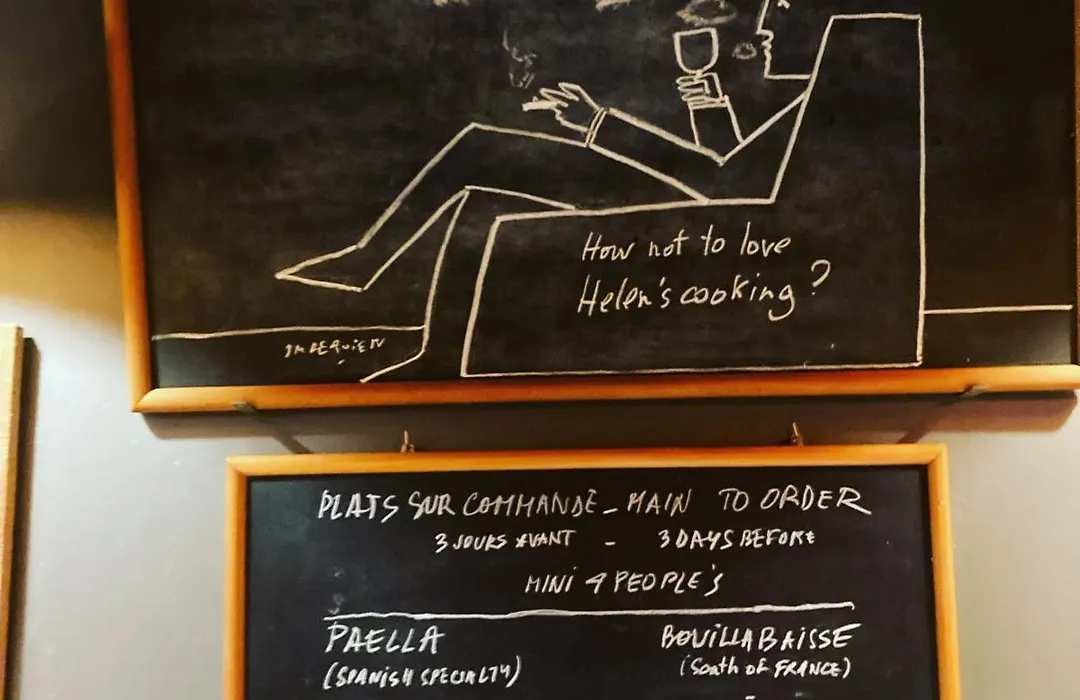 How not to love
Helen's cooking?
PLATS SUR COMMANDE - MAIN TO ORDER
3 JOURS AVANT - 3 DAYS BEFORE
MINI 4 PEOPLE'S
PAELLA BOUILLABAISSE
(SPANISH SPECIALTY) (SOUTH OF FRANCE)